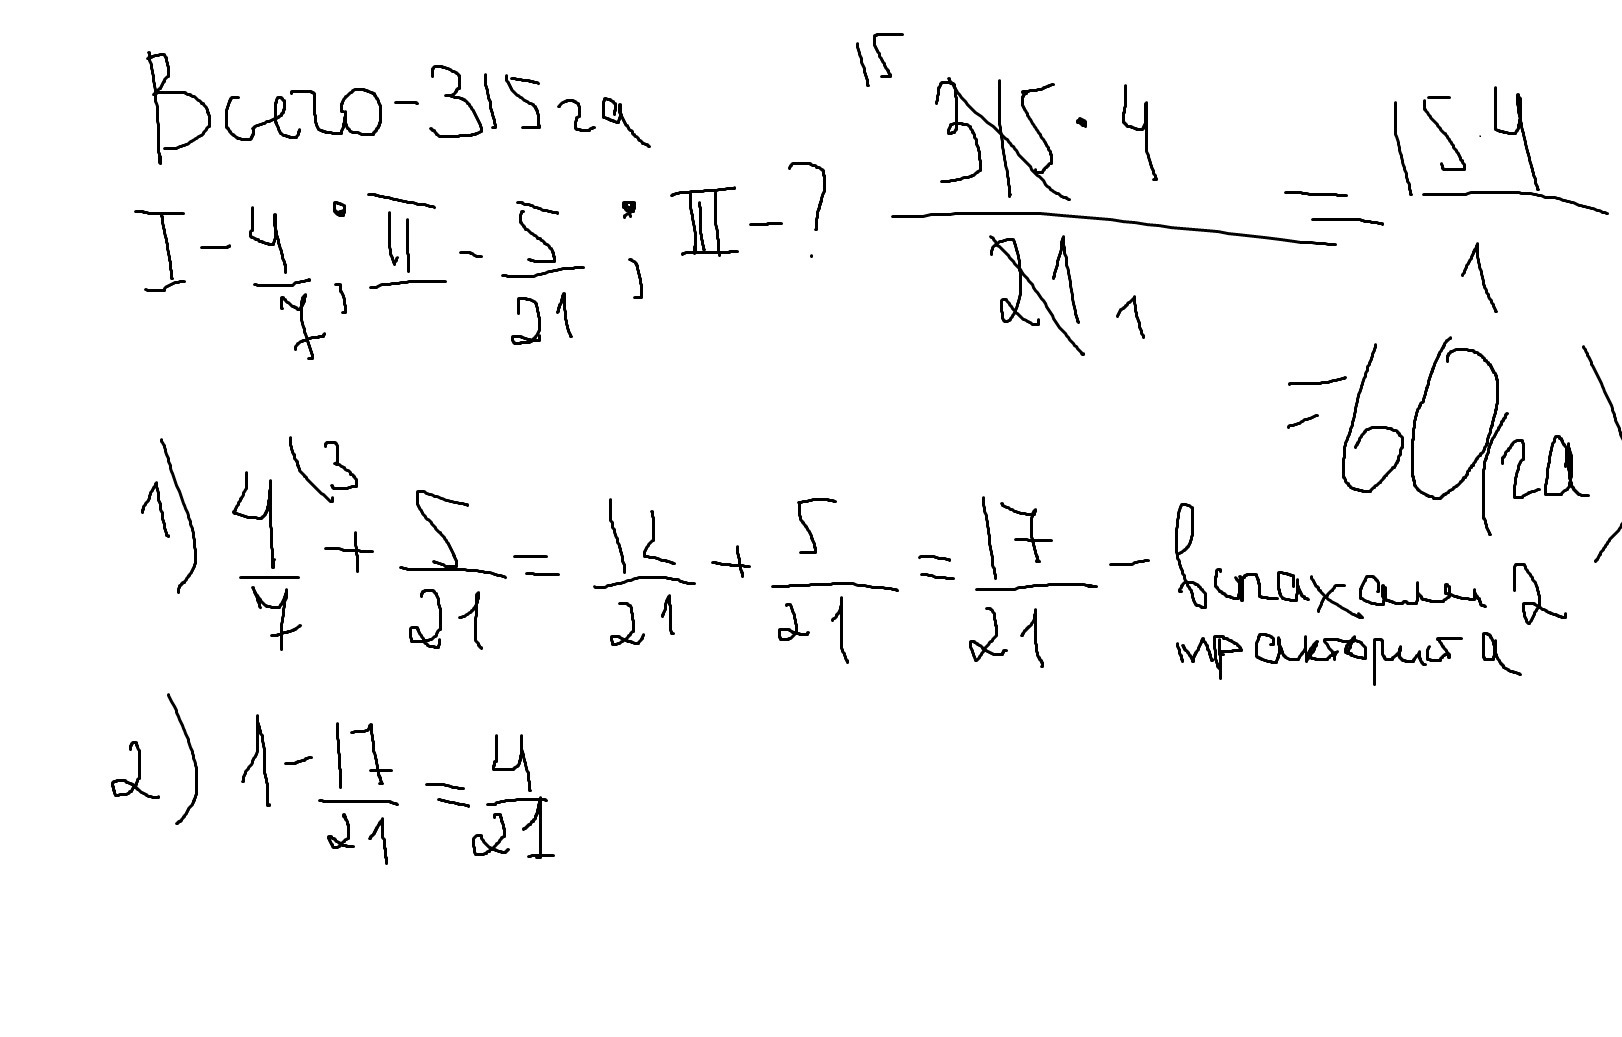 Всего - 315 га
I - 4/7; II - 5/21; III - ?
15
315 · 4 / 21 1 = 15 · 4 / 1
= 60 (га)
1) 4/7 \3 + 5/21 = 12/21 + 5/21 = 17/21 - вспахали 2
тракториста
2) 1 - 17/21 = 4/21